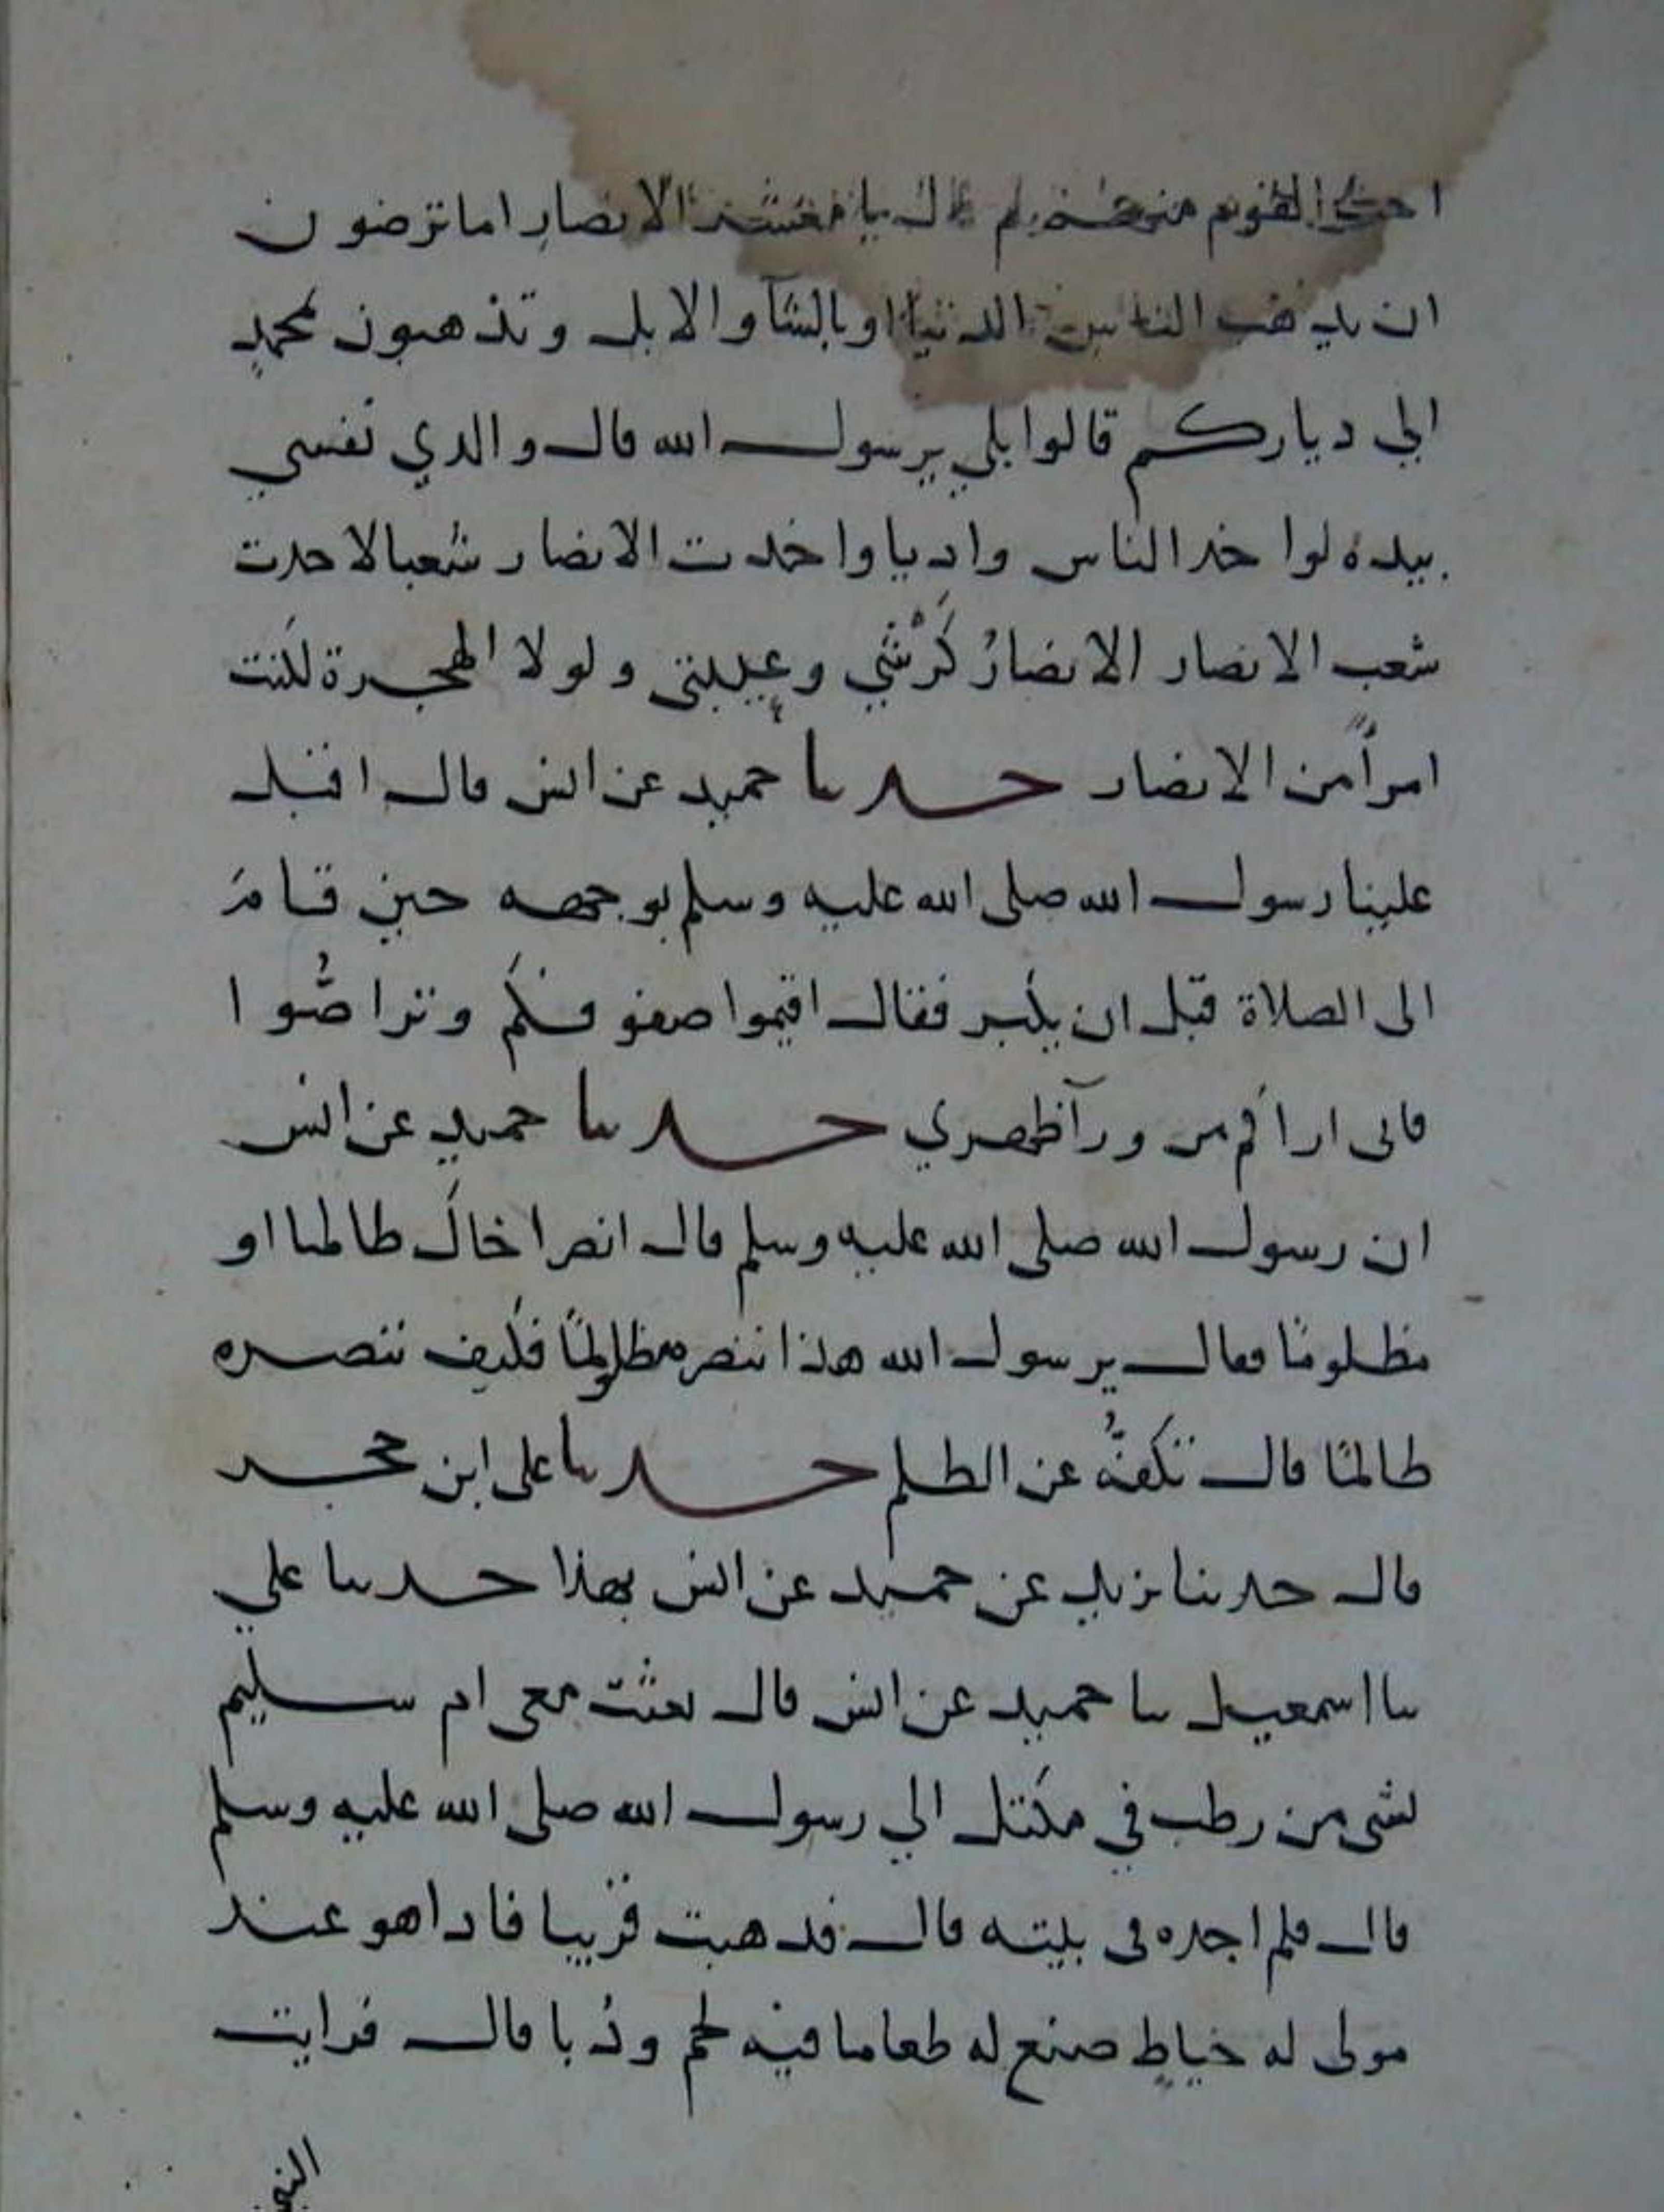 القوم منهم قال يا معشر الانصار اما ترضون
ان يذهب الناس الدنيا او بالشآ والابل وتذهبون بمحمد
الي دياركم قالوا بلي يرسول الله قال والدي نفسي
بيده لو اخد الناس واديا واخدت الانصار شعبا لاخدت
شعب الانصار الانصارُ كَرْشي وعيبتي ولولا الهجرة لكنت
امرأً من الانصار حدثنا حميد عن انس قال اقبل
علينا رسول الله صلى الله عليه وسلم بوجهه حين قامَ
الى الصلاة قبل ان يكبر فقال اقيموا صفوفكم وتراصُّوا
فانى اراكم من ورآ ظهري حدثنا حميد عن انس
ان رسول الله صلى الله عليه وسلم قال انصر اخاك ظالما او
مظلومًا فقال يرسول الله هذا ننصره مظلومًا فكيف ننصره
ظالمًا قال تكفُّه عن الظلم حدثنا على ابن حجر
قال حدثنا يزيد عن حميد عن انس بهذا حدثنا علي
نا اسمعيل نا حميد عن انس قال بعثت معى ام سليم
بشى من رطب في مكتل الي رسول الله صلى الله عليه وسلم
قال فلم اجده فى بيته قال فدهبت قريبا فادا هو عند
مولى له خياطٍ صنع له طعاما فيه لحم ودُبا قال فرايت
النبي